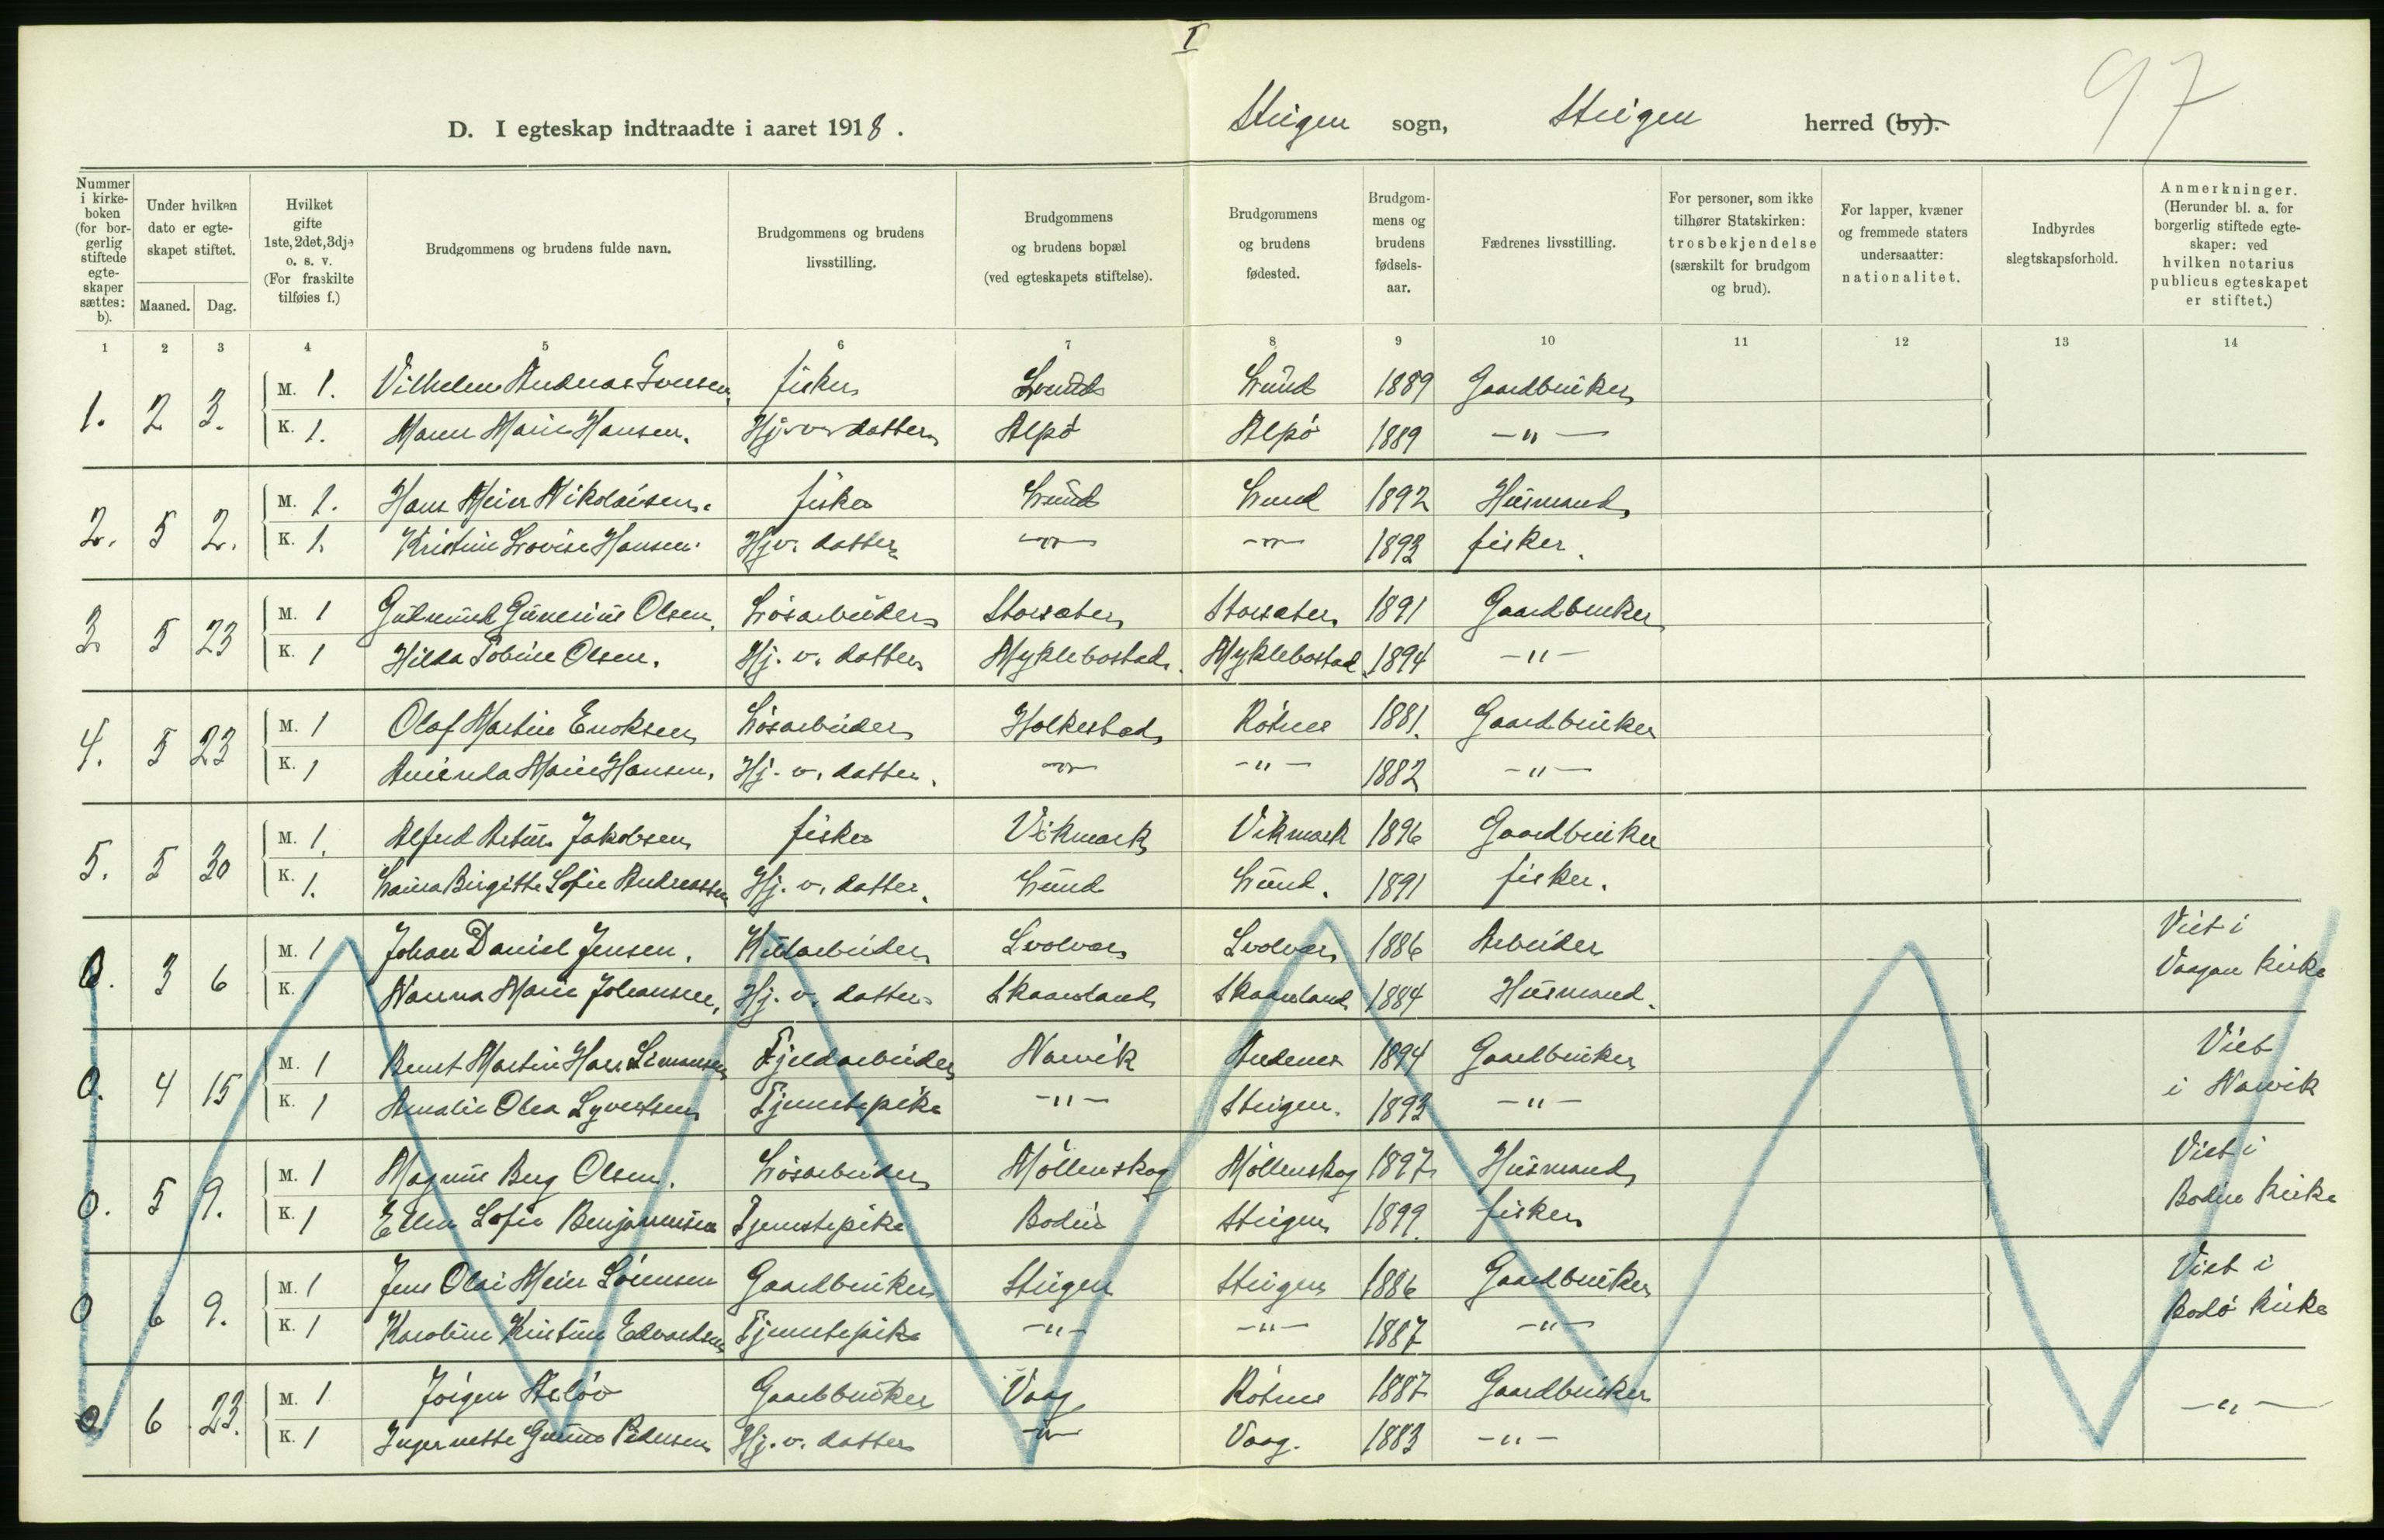 I
97
D. I egteskap indtraadte i aaret 1918.
Steigen sogn, Steigen herred (by).
Nummer i kirkeboken (for borgerlig stiftede egteskaper sættes: b).
Under hvilken dato er egteskapet stiftet.
Maaned. Dag.
Hvilket gifte 1ste, 2det, 3dje o. s. v. (For fraskilte tilføies f.)
Brudgommens og brudens fulde navn.
Brudgommens og brudens livsstilling.
Brudgommens og brudens bopæl (ved egteskapets stiftelse).
Brudgommens og brudens fødested.
Brudgommens og brudens fødselsaar.
Fædrenes livsstilling.
For personer, som ikke tilhører Statskirken: trosbekjendelse (særskilt for brudgom og brud).
For lapper, kvæner og fremmede staters undersaatter: nationalitet.
Indbyrdes slegtskapsforhold.
Anmerkninger. (Herunder bl. a. for borgerlig stiftede egteskaper: ved hvilken notarius publicus egteskapet er stiftet.)
1 2 3 4 5 6 7 8 9 10 11 12 13 14
1. 2 3. M. 1. Vilhelm Andreas Evensen, fisker Lund Lund 1889 Gaardbruker
K. 1. Marie Hansen. Hj. v. datter Alpö Alpö 1889 —"—
2. 5 2. M. 1. Hans Meier Nikolaisen. fisker Lund Lund 1892 Husmand
K. 1. Kristine Lovise Hansen. Hj. v. datter —"— —"— 1893 fisker.
3. 5 23 M. 1 Gudmund Gunerius Olsen. Lösarbeider Storsæter Storsæter 1891 Gaardbruker
K. 1 Hilda Tobine Olsen. Hj. v. datter Myklebostad. Myklebostad 1894 —"—
4. 5 23 M. 1 Olaf Martin Enoksen Lösarbeider Holkestad Rötnes 1881. Gaardbruker
K. 1 Marie Hansen. Hj. v. datter. —"— —"— 1882 —"—
5. 5 30 M. 1. Alfred Artur Jakobsen fisker Vikmark Vikmark 1896 Gaardbruker
K. 1. Birgitte Sofie Andreassen Hj. v. datter. Lund Lund. 1891 fisker.
0. 3 6 M. 1 Johan Daniel Jensen. Kularbeider Svolvær Svolvær 1886 Arbeider Viet i
K. 1 Nanna Marie Johansen. Hj. v. datter Skaanland Skaanland 1884 Husmand. Vaagan kirke
0. 4 15 M. 1 Bernt Martin Hans Simonsen Fjeldarbeider Narvik Andenes 1894 Gaardbruker Viet
K. 1 Amalie Olea Syvertsen Tjenestepike —"— Steigen. 1893 —"— i Narvik
0. 5 9. M. 1 Magnus Berg Olsen. Lösarbeider Möllenskog Möllenskog 1897 Husmand Viet i
K. 1 Ellen Sofie Benjaminsen Tjenestepike Bodin Steigen 1899. fisker Bodin kirke
0 6 9. M. 1 Jens Olai Meier Sörensen Gaardbruker Steigen Steigen 1886 Gaardbruker Viet i
K. 1 Karoline Kristine Edvardsen Tjenestepike —"— —"— 1887 —"— Bodö kirke
0. 6 23. M. 1 Jörgen Aslöv Gaardbruker Vaag Rötnes 1887 Gaardbruker —"—
K. 1 Pedersen Hj. v. datter —"— Vaag. 1883 —"—